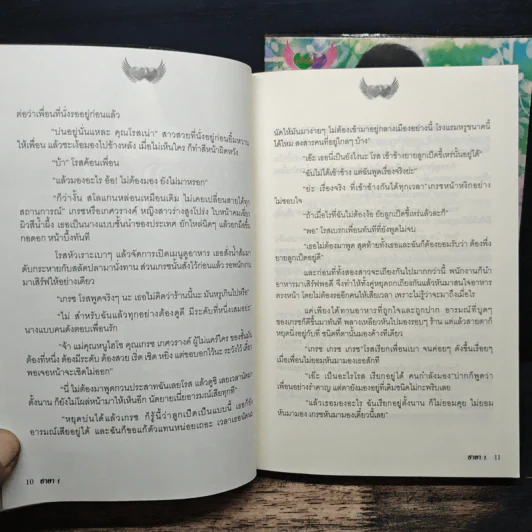 ต่อว่าเพื่อนที่นั่งรออยู่ก่อนแล้ว
“บ่นอยู่นั่นแหละ คุณโรสเน่า” สาวสวยที่นั่งอยู่ก่อนยิ้มหวาน
ให้เพื่อน แล้วชะเง้อมองไปข้างหลัง เมื่อไม่เห็นใคร ก็ทำสีหน้าผิดหวัง
“บ้า” โรสค้อนเพื่อน
“แล้วมองอะไร อ้อ! ไม่ต้องมอง ยังไม่มาหรอก”
“ก็ว่างั้น สโลแกนหล่อนเหมือนเดิม ไม่เคยเปลี่ยนสายได้ทุก
สถานการณ์” เกรซหรือเกศวรางค์ หญิงสาวร่างสูงโปร่ง ใบหน้าคมเฉี่ยว
ผิวสีน้ำผึ้ง เธอเป็นนางแบบชั้นนำของประเทศ ยักไหล่นิดๆ แล้วยกมือขึ้น
กอดอก หน้าบึ้งทันที
โรสหัวเราะเบาๆ แล้วจัดการเปิดเมนูดูอาหาร เธอสั่งน้ำส้มมา
ดับกระหายกับสลัดปลามานั่งทาน ส่วนเกรซนั้นสั่งไว้ก่อนแล้ว รอพนักงาน
มาเสิร์ฟให้อย่างเดียว
“เกรซ โรสพูดจริงๆ นะ เธอไม่คิดว่าร้านนี้นะ มันหรูเกินไปหรือ”
“ไม่ สำหรับฉันแล้วทุกอย่างต้องดูดี มีระดับที่หนึ่งเสมอย่ะ”
นางแบบคนดังตอบเพื่อนรัก
“จ้า แม่คุณหนูไฮโซ คุณเกรซ เกศวรางค์ ผู้ไม่แคร์ใคร ของชั้นใน
ต้องที่หนึ่ง ต้องมีระดับ ต้องสวย เริ่ด เชิด หยิ่ง แต่ขอบอกไว้นะ ระวังไว้ เดี๋ยว
พอเจอหน้าจะเชิดไม่ออก”
“นี่ ไม่ต้องมาพูดกวนประสาทฉันเลยโรส แล้วดูซิ เลยเวลานัดมา
ตั้งนาน ก็ยังไม่โผล่หน้ามาให้เห็นอีก นัดยายเนี่ยอารมณ์เสียทุกที”
“หยุดบ่นได้แล้วเกรซ ก็รู้นี้ว่าลูกเป็ดเป็นแบบนี้ เธอก็ยัง
อารมณ์เสียอยู่ได้ และฉันก็ขอแก้ตัวแทนหน่อยเถอะ เวลาเธอนัดนะ
10 ฮายา 1
นัดให้มันมาง่ายๆ ไม่ต้องเข้ามาอยู่กลางเมืองอย่างนี้ โรงแรมหรูขนาดนี้
ได้ไหม สงสารคนที่อยู่ไกลๆ บ้าง”
“เอ๊ะ เธอนี่เป็นยังไงนะ โรส เข้าข้างยายลูกเป็ดขี้เหร่นั่นอยู่ได้”
“ฉันไม่ได้เข้าข้าง แต่ฉันพูดเรื่องจริงย่ะ”
“ย่ะ เรื่องจริง ที่เข้าข้างกันได้ทุกเวลา” เกรซหน้าหงิกอย่าง
ไม่ชอบใจ
“ถ้าเมื่อไรที่ฉันไม่ต้องง้อ ยัยลูกเป็ดขี้เหร่แล้วละก็”
“พอ” โรสเบรกเพื่อนทันทีที่ยังพูดไม่จบ
“เธอไม่ต้องมาพูด สุดท้ายทั้งเธอและฉันก็ต้องยอมรับว่า ต้องพึ่ง
ยายลูกเป็ดอยู่ดี”
และก่อนที่ทั้งสองสาวจะเถียงกันไปมากกว่านี้ พนักงานก็นำ
อาหารมาเสิร์ฟพอดี จึงทำให้ทั้งคู่หยุดถกเถียงกันแล้วหันมาสนใจอาหาร
ตรงหน้า โดยไม่ต้องรออีกคนให้เสียเวลา เพราะไม่รู้ว่าจะมาถึงเมื่อไร
แต่เพียงได้ทานอาหารที่ถูกใจและถูกปาก อารมณ์ที่บูดๆ
ของเกรซก็ดีขึ้นมาทันที พลางเหลือบหันไปมองรอบๆ ร้าน แต่แล้วสายตาก็
หยุดนิ่งอยู่กับที่ ชนิดที่ตานั้นมองค้างทีเดียว
“เกรซ เกรซ เกรซ” โรสเรียกเพื่อนเบา จนค่อยๆ ดังขึ้นเรื่อยๆ
เมื่อเพื่อนไม่ยอมหันมามองเธอสักที
“เอ๊ะ เป็นอะไรโรส เรียกอยู่ได้ คนกำลังมอง” ปากก็พูดว่า
เพื่อนอย่างรำคาญ แต่ตายังมองอยู่ที่เดิมชนิดไม่กะพริบเลย
“แล้วเธอมองอะไร ฉันเรียกอยู่ตั้งนาน ก็ไม่ยอมคุย ไม่ยอม
หันมามอง เกรซหันมามองเดี๋ยวนี้เลย”
ฮายา 1 11